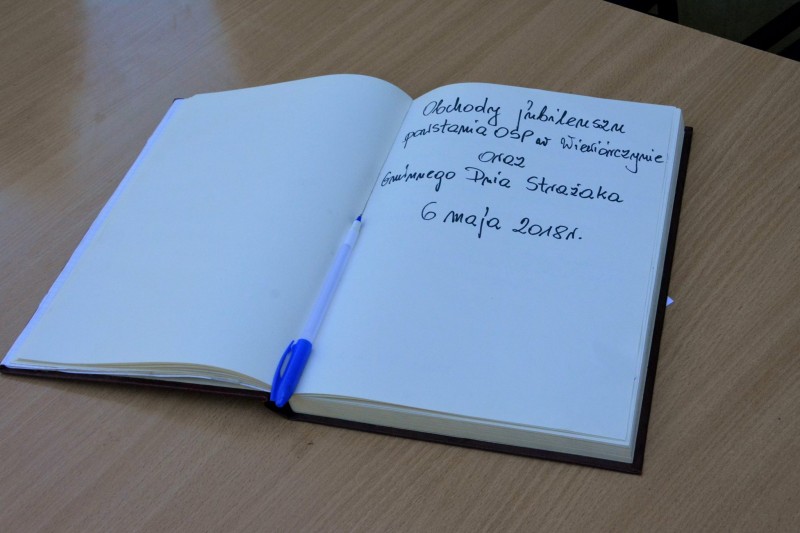 Obchody jubileuszu
powstania OSP w Wiewiórczynie
oraz
Gminnego Dnia Strażaka
6 maja 2018r.